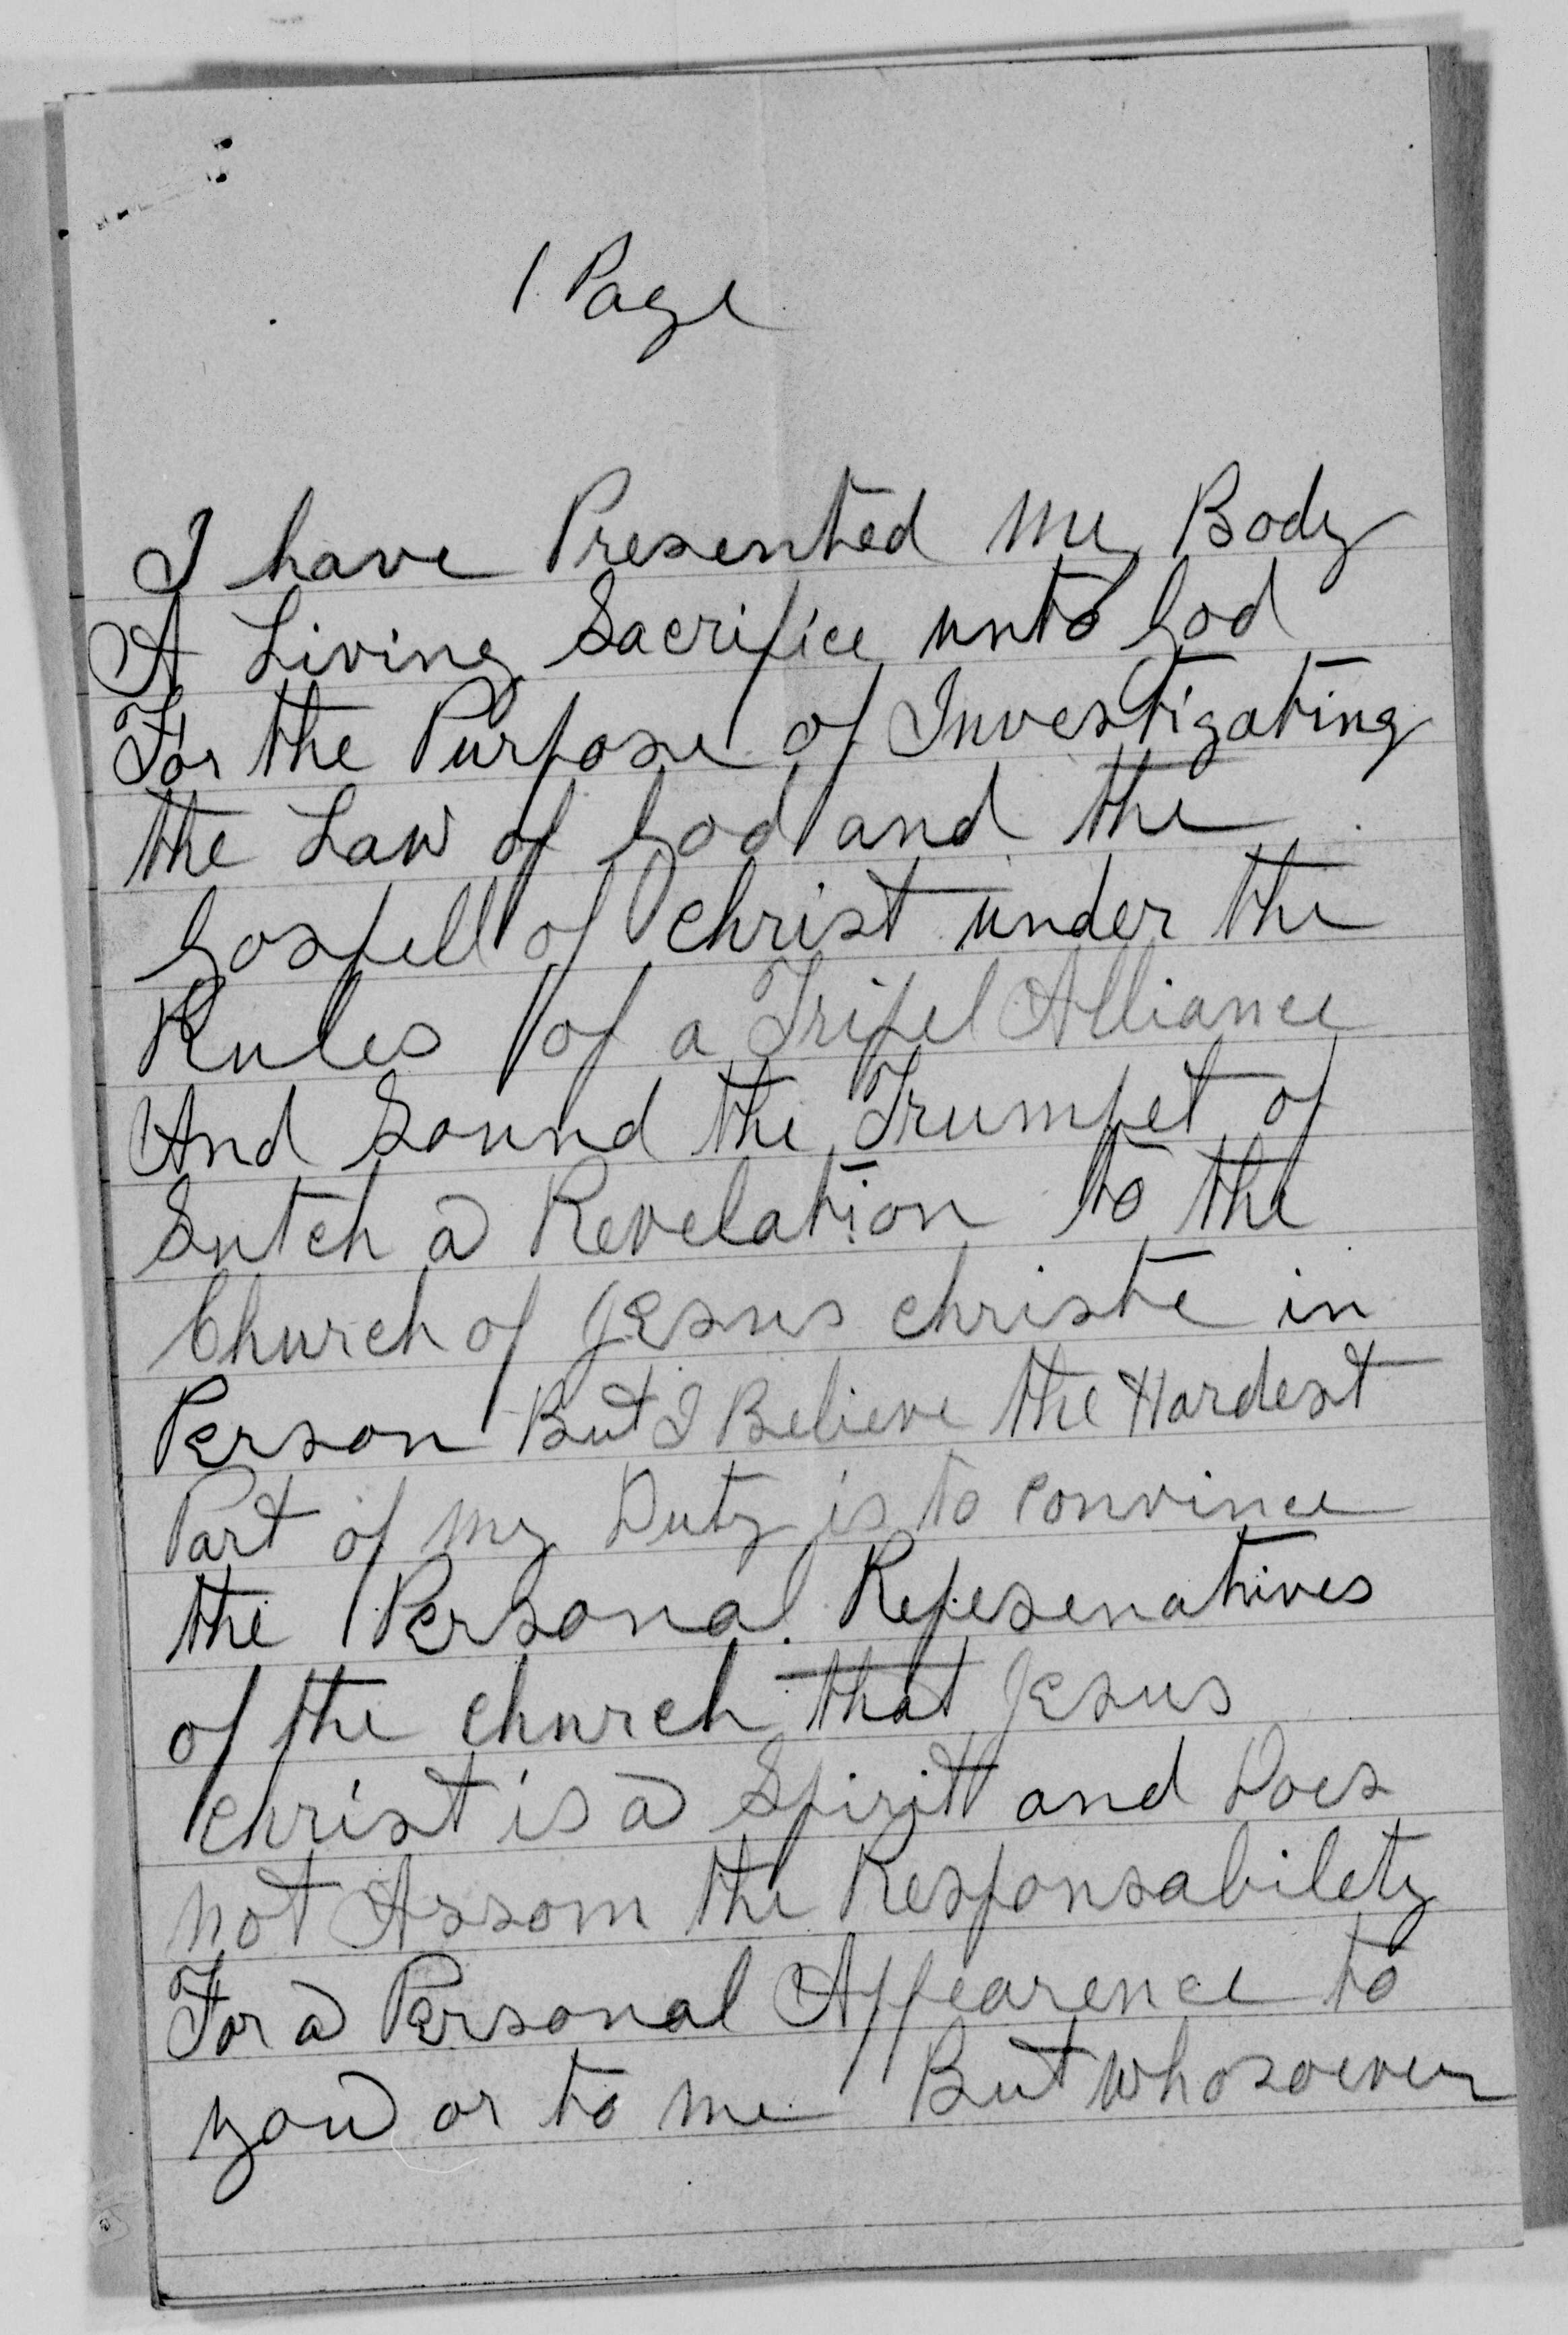 1 Page
I have Presented my Body
A Living Sacrifice unto God
For the Purpose of Investigating
the Law of God and the
Gospell of Christ under the
Rules of a Tripel Alliance
And Sound the Trumpet of
Sutch a Revelation to the
Church of Jesus christe in
Person But I Believe the Hardest
Part of my Duty is to convince
the Persona. Repesenatives
of the church that Jesus
christ is a Spirit and Does
not Assom the Responsabilety
For a Personal Appearence to
you or to me But whosoever